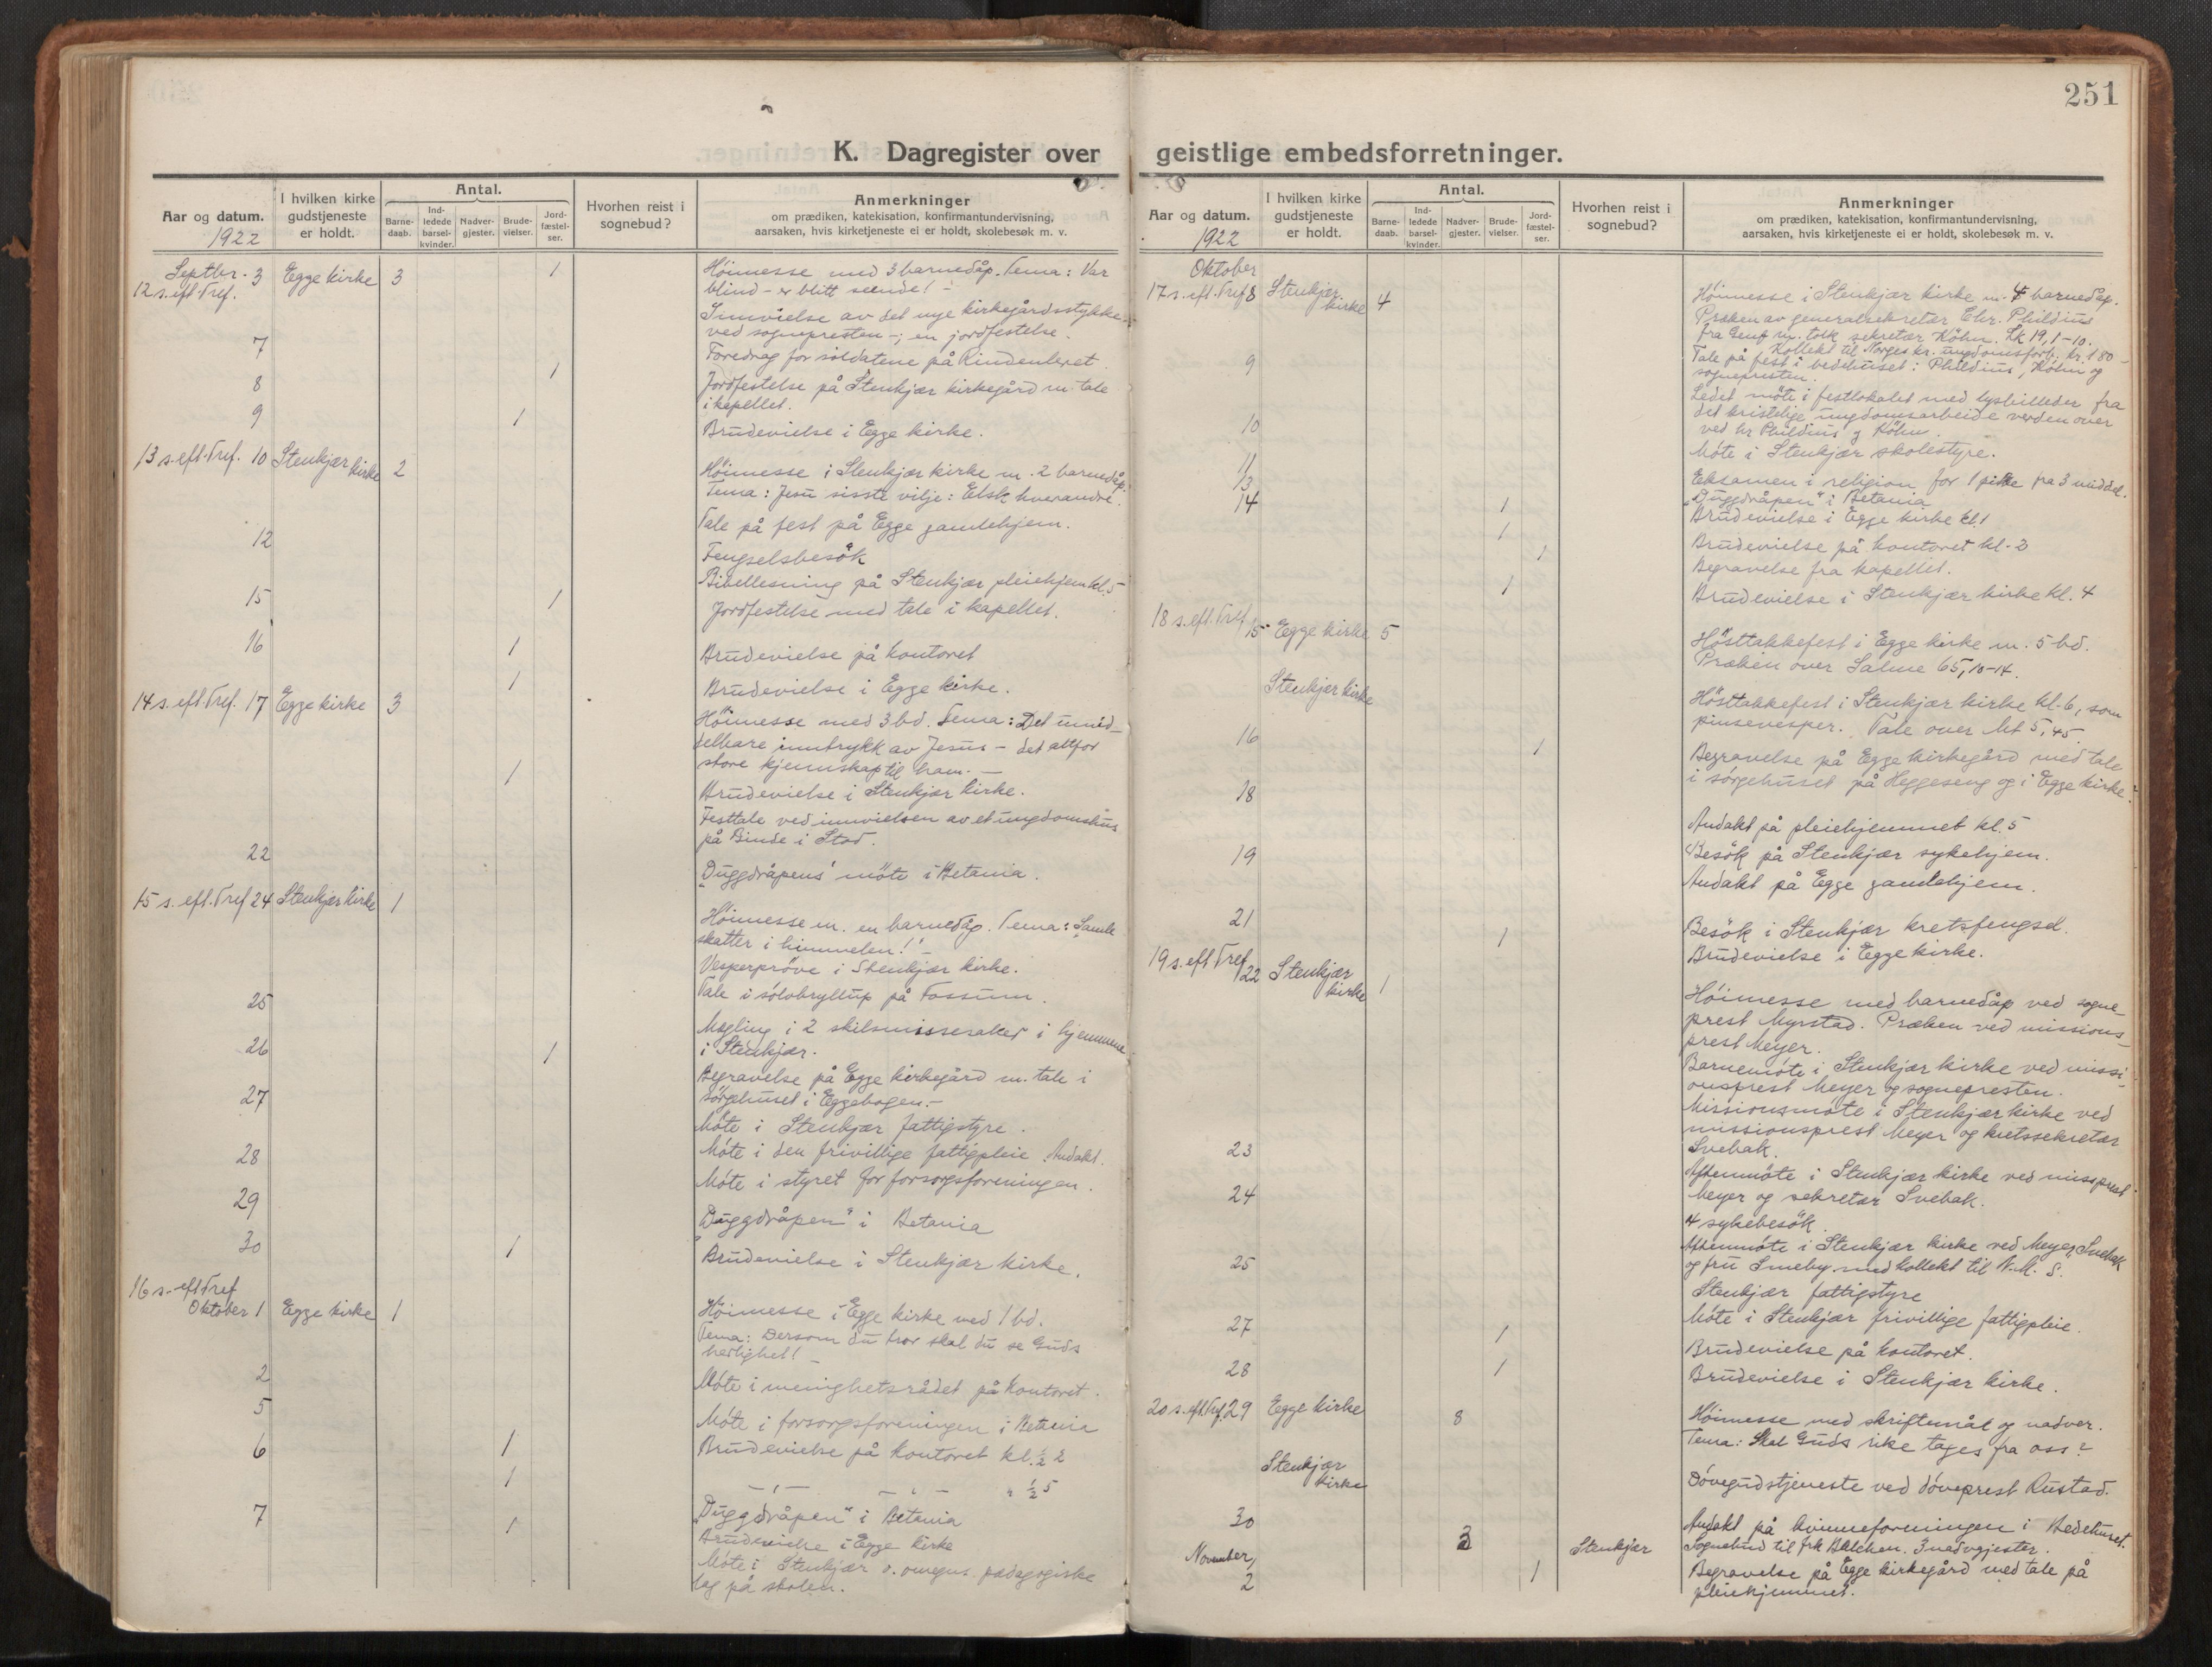 251
K. Dagregister over geistlige embedsforretninger.
Aar og datum.
1922
I hvilken kirke gudstjeneste er holdt.
Antal.
Barne-daab.
Ind-ledede barsel-kvinder.
Nadver-gjester.
Brude-vielser.
Jord-fæstel-ser.
Hvorhen reist i sognebud?
Anmerkninger
om prædiken, katekisation, konfirmantundervisning,
aarsaken, hvis kirketjeneste ei er holdt, skolebesøk m. v.
Septbr. 3 Egge kirke 3 1 Höimesse med 3 barnedåp. Tema: Var
12 s. eft. Tref. blind - er blitt seende! -
Innvielse av det nye kirkegårdsstykke
ved sognepresten -; en jordfestelse.
7 Foredrag for soldatene på Rindenleret.
8 1 Jordfestelse på Stenkjær kirkegård m. tale
i kapellet.
9 1 Brudevielse i Egge kirke.
13 s. eft. Tref. 10 Stenkjær kirke 2 Höimesse i Stenkjær kirke m. 2 barnedåp.
Tema: Jesu siste vilje: Elsk hverandre.
Tale på fest på Egge gamlehjem.
12 Fengselsbesök
Bibellesning på Stenkjær pleiehjem kl. 5
15 1 Jordfestelse med tale i kapellet.
16 1 Brudevielse på kontoret
1 Brudevielse i Egge kirke.
14 s. eft. Tref. 17 Egge kirke 3 Höimesse med 3 bd. Tema: Det umid-
delbare inntrykk av Jesus - det altfor
store kjennskap til ham. -
1 Brudevielse i Stenkjær kirke.
Festtale ved innvielsen av et ungdomshus
på Binde i Stod.
22 "Duggdråpens" möte i Betania.
15 s. eft. Tref 24 Stenkjær kirke 1 Höimesse m. en barnedåp. Tema: "Samle
skatter i himmelen!" -
Vesperpröve i Stenkjær kirke.
Tale i sölvbryllup på Fossum.
25 Megling i 2 skilsmissesaker i hjemmene
i Stenkjær.
26 1 Begravelse på Egge kirkegård m. tale i
sörgehuset i Eggebogen. -
27 Möte i Stenkjær fattigstyre.
Möte i den frivillige fattigpleie. Andakt.
28 Möte i styret for forsorgsforeningen.
29 "Duggdråpen" i Betania
30 1 Brudevielse i Stenkjær kirke.
16 s. eft Tref
Oktober 1 Egge kirke 1 Höimesse i Egge kirke med 1 bd.
Tema: Dersom du tror skal du se Guds
herlighet! -
2 Möte i menighetsrådet på kontoret.
5 Möte i forsorgsforeningen i Betania
6 1 Brudevielse på kontoret kl. ½ 2
1 - " - - " - " ½ 5
7 "Duggdråpen" i Betania
1 Brudevielse i Egge kirke
Möte i Stenkjær o. omegns pædagogiske
lag på skolen.
Aar og datum.
1922
I hvilken kirke gudstjeneste er holdt.
Antal.
Barne-daab.
Ind-ledede barsel-kvinder.
Nadver-gjester.
Brude-vielser.
Jord-fæstel-ser.
Hvorhen reist i sognebud?
Anmerkninger
om prædiken, katekisation, konfirmantundervisning,
aarsaken, hvis kirketjeneste ei er holdt, skolebesøk m. v.
Oktober
17 s. eft. Tref 8 Stenkjær kirke 4 Höimesse i Stenkjær kirke m. 4 barnedåp.
Præken av generalsekretær Chr. Phildius
fra Genf m. tolk sekretær Köhn. Lk 19, 1-10.
Kollekt til Norges kr. ungdomsforb. kr. 180 -
Tale på fest i bedehuset: Phildius, Köhn og
sognepresten.
9 Ledet möte i festlokalet med lysbilleder fra
det kristelige ungdomsarbeide verden over
ved hr Phildius og Köhn.
10 Möte i Stenkjær skolestyre.
11 Eksamen i religion for 1 pike fra 3 middel.
13 "Duggdråpen" i Betania
14 1 Brudevielse i Egge kirke kl. 1
1 Brudevielse på kontoret kl. 2
1 Begravelse fra kapellet.
1 Brudevielse i Stenkjær kirke kl. 4
18 s. eft. Tref 15 Egge kirke 5 Hösttakkefest i Egge kirke m. 5 bd.
Præken over Salme 65, 10-14.
Stenkjær kirke Hösttakkefest i Stenkjær kirke kl. 6, som
pinsevesper. Tale over Mt 5, 45.
16 1 Begravelse på Egge kirkegård med tale
i sörgehuset på Heggeseng og i Egge kirke.
18 Andakt på pleiehjemmet kl. 5
Besök på Stenkjær sykehjem.
19 Andakt på Egge gamlehjem.
21 Besök i Stenkjær kretsfengsel.
1 Brudevielse i Egge kirke.
19 s. eft Tref 22 Stenkjær kirke 1 Höimesse med barnedåp ved sogne-
prest Myrstad. Præken ved missions-
prest Meyer.
Barnemöte i Stenkjær kirke ved missi-
onsprest Meyer og sognepresten.
Missionsmöte i Stenkjær kirke ved
missionsprest Meyer og kretssekretær
Svebak.
23 Aftenmöte i Stenkjær kirke ved missprest
Meyer og sekretær Svebak.
24 4 sykebesök.
Aftenmöte i Stenkjær kirke ved Meyer, Svebak
og fru Smeby med kollekt til N. M. S.
25 Stenkjær fattigstyre
Möte i Stenkjær frivillige fattigpleie.
27 1 Brudevielse på kontoret.
28 1 Brudevielse i Stenkjær kirke.
20 s. eft. Tref. 29 Egge kirke 8 Höimesse med skriftemål og nadver.
Tema: Skal Guds rike tages fra oss?
Stenkjær kirke Dövegudstjeneste ved döveprest Rustad.
30 Andakt på kvinneforeningen i Bedehuset.
3 Stenkjær Sognebud til frk Balchen. 3 nadvgjester.
November
2 1 Begravelse på Egge kirkegård med tale på
pleiehjemmet.